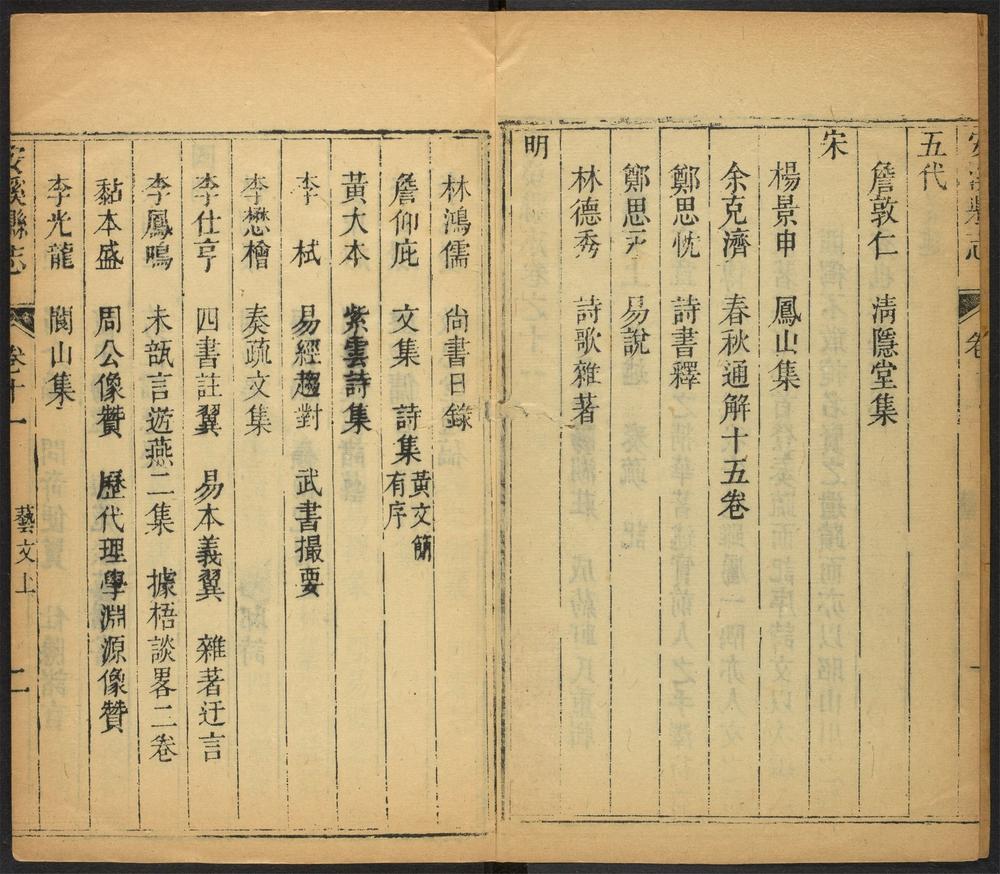 五代
詹敦仁 清隱堂集
宋
楊景申 鳳山集
余克濟 春秋通解十五卷
鄭思忱 詩書釋
鄭思永 易說
林德秀 詩歌雜著
明
林鴻儒 尚書日錄
詹仰庇 文集 詩集 黃文簡有序
黃大本 紫雲詩集
李栻 易經趨對 武書撮要
李懋檜 奏疏文集
李仕亨 四書註翼 易本義翼 雜著迂言
李鳳鳴 未瓿言遊燕二集 據梧談畧二卷
黏本盛 周公像贊 歷代理學淵源像贊
李光龍 閬山集
安溪縣志 卷十一 藝文上 二